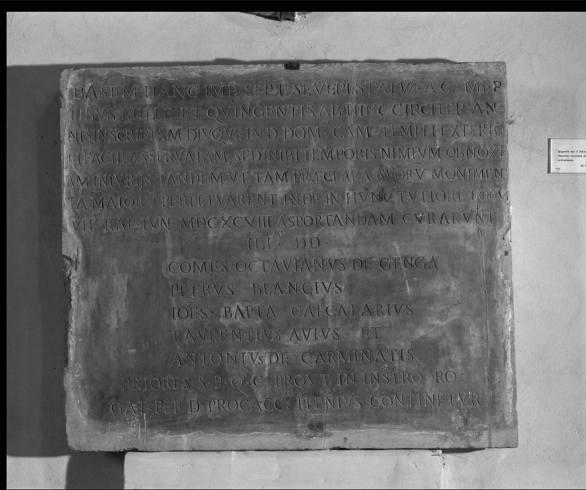 BASEM HANC IMP. SEPT. SEVERI STATVA AC TEMP
MILLE ET QVINGENTIS ABHINC CIRCITER AN
NIS INSCRIPTAM DIVQVE IN D. DOM. CAM. TEMPLI EXTERIO
FACIE SERVATAM SED IBI TEMPORIS NIMIVM OBNOXI
AM INIVRIIS TANDEM VT TAM PRECLARA SVORV MONIMEN
TA MAIORV PERPETVARENT INDE IN HVNC TVTIORE LOCV
VIII KAL. IVN. MDCXCVIII ASPORTANDAM CVRARVNT
ILL. DD.
COMES OCTAVIANVS DE GENGA
PETRVS BLANCIVS
IOES. BAPTA CALCALARIVS
LAVRENTIVS AVIVS ET
ANTONIVS DE CARMINATIS
PRIORES S. P. Q. C. PROVT IN INSTRO RO
GAT. PER D. PROCACC. PLENIVS CONTINETVR